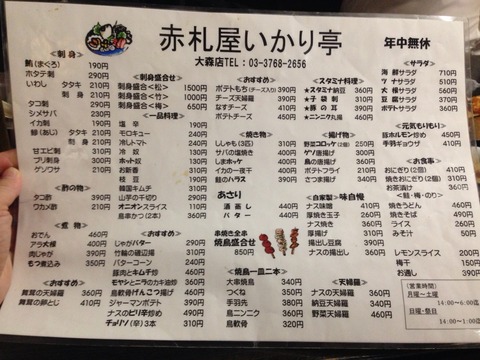 赤札屋いかり亭
年中無休
大森店TEL:03-3768-2656
≪刺身≫
鮪(まぐろ) 190円
ホタテ刺 290円
いわし タタキ 210円
刺身 210円
タコ刺 290円
シメサバ 230円
イカ刺 190円
鯵(あじ) タタキ 210円
刺身 210円
甘エビ刺
ブリ刺身 300円
ゲンゾワ 350円
≪酢の物≫
タコ酢 390円
ワカメ酢 210円
≪煮物≫
おでん 460円
アラ大根 290円
肉じゃが 400円
もつ煮込み 350円
≪おすすめ≫
舞茸の天婦羅 360円
舞茸の卵とじ 410円
≪刺身盛合せ≫
刺身盛合<松> 1500円
刺身盛合<竹> 1100円
刺身盛合<梅> 650円
≪一品料理≫
塩辛 190円
モロキュー 210円
冷しトマト 210円
冷奴 190円
ホット奴 190円
お新香 210円
枝豆 210円
韓国キムチ 210円
山芋の千切り 290円
オニオンスライス 190円
島串かつ(2本) 370円
≪おすすめ≫
じゃがバター 290円
竹輪の磯辺揚 290円
バターコーン 240円
豚肉とキムチ炒 360円
モヤシとニラのカキ油炒 360円
鳥軟骨げんこつ揚げ 360円
ジャーマンポテト 390円
ナスのピリ辛炒め 360円
チョリソ(辛)3本 310円
≪おすすめ≫
ポテトもち(チーズ入り) 390円
チーズ天婦羅 390円
なすチーズ 410円
ポテトチーズ 450円
≪焼き物≫
ししゃも(3匹) 310円
サバの塩焼き 300円
しまホッケ 390円
イカの一夜干 400円
鮭のハラス 390円
あさり
酒蒸し 440円
バター 490円
串焼き全本
焼鳥盛合せ
850円
≪焼鳥一皿二本≫
大串焼鳥 340円
つくね 260円
手羽先 310円
鳥ニンニク 360円
鳥軟骨 320円
≪スタミナ料理≫
★スタミナ納豆 410円
★子袋刺 310円
★豚の耳 390円
★ニンニク丸揚 460円
≪揚げ物≫
野菜コロッケ(2個) 310円
ゲソ唐揚げ 310円
鳥の唐揚げ 350円
ポテトフライ 310円
さつま揚げ 340円
≪自家製≫味自慢
ナス味噌 390円
厚焼き玉子 260円
厚揚げ 310円
揚出し豆腐 390円
ナスの揚出し 390円
≪天婦羅≫
ナスの天婦羅 360円
納豆天婦羅 340円
野菜天婦羅 340円
≪サラダ≫
海鮮サラダ 710円
ツナサラダ 510円
大根サラダ 510円
豆腐サラダ
ポテトサラダ 360円
≪元気もりもり≫
豚ホルモン炒め 400円
手羽ギョウザ 340円
≪お食事≫
おにぎり(2個) 310円
焼きおにぎり(2個) 310円
お茶漬け 360円
焼きうどん 460円
焼きそば 490円
雑炊 410円
みそ汁 50円
レモンスライス 60円
梅干し 50円
お通し 390円
[営業時間]
月曜~土曜
14:00~6:00迄
日曜・祭日
14:00~1:00迄